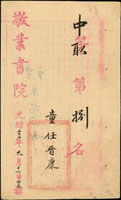 中取第捌名
童任晉康
敬業書院
光緒年九月十日